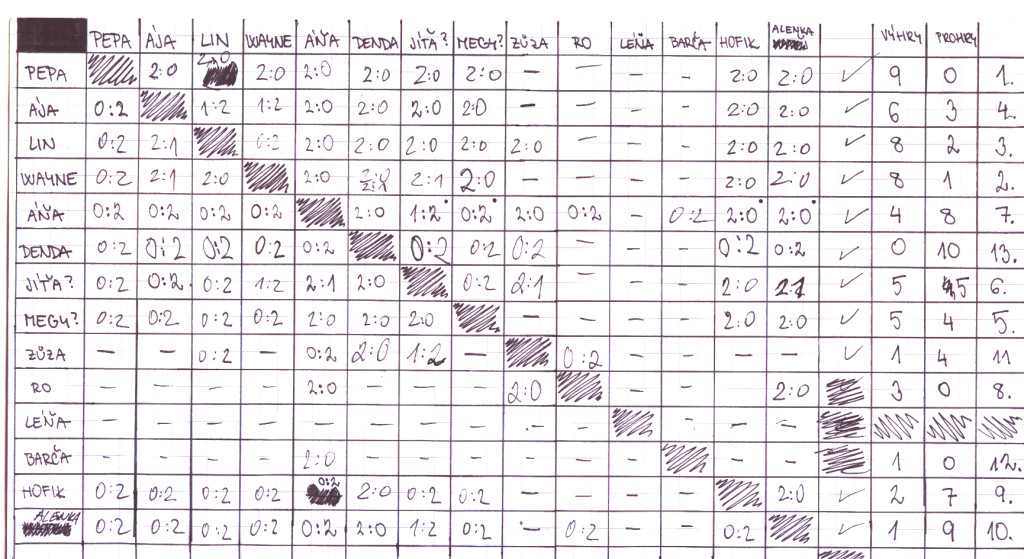 PEPA ÁJA LIN WAYNE ÁŇA DENDA JÍŤA? MEGY? ZŮZA RO LEŇA BARČA HOFIK ALENKA VÝHRY PROHRY
PEPA 2:0 2:0 2:0 2:0 2:0 2:0 2:0 – – – – 2:0 2:0 ✓ 9 0 1.
ÁJA 0:2 1:2 1:2 2:0 2:0 2:0 2:0 – – – – 2:0 2:0 ✓ 6 3 4.
LIN 0:2 2:1 0:2 2:0 2:0 2:0 2:0 2:0 – – – 2:0 2:0 ✓ 8 2 3.
WAYNE 0:2 2:1 2:0 2:0 2:1 2:0 – – – – 2:0 2:0 ✓ 8 1 2.
ÁŇA 0:2 0:2 0:2 0:2 2:0 1:2 0:2 2:0 0:2 – 0:2 2:0 2:0 ✓ 4 8 7.
DENDA 0:2 0:2 0:2 0:2 0:2 0:2 0:2 0:2 – – – 0:2 0:2 ✓ 0 10 13.
JÍŤA? 0:2 0:2 0:2 1:2 2:1 2:0 0:2 2:1 – – – 2:0 2:1 ✓ 5 5 6.
MEGY? 0:2 0:2 0:2 0:2 2:0 2:0 2:0 – – – – 2:0 2:0 ✓ 5 4 5.
ZŮZA – – 0:2 – 0:2 2:0 1:2 – 0:2 – – – – ✓ 1 4 11
RO – – – – 2:0 – – – 2:0 – – 2:0 3 0 8.
LEŇA – – – – – – – – – – – – –
BARČA – – – – 2:0 – – – – – – – – 1 0 12.
HOFIK 0:2 0:2 0:2 0:2 0:2 2:0 0:2 0:2 – – – – 2:0 ✓ 2 7 9.
ALENKA 0:2 0:2 0:2 0:2 0:2 2:0 1:2 0:2 – 0:2 – – 0:2 ✓ 1 9 10.